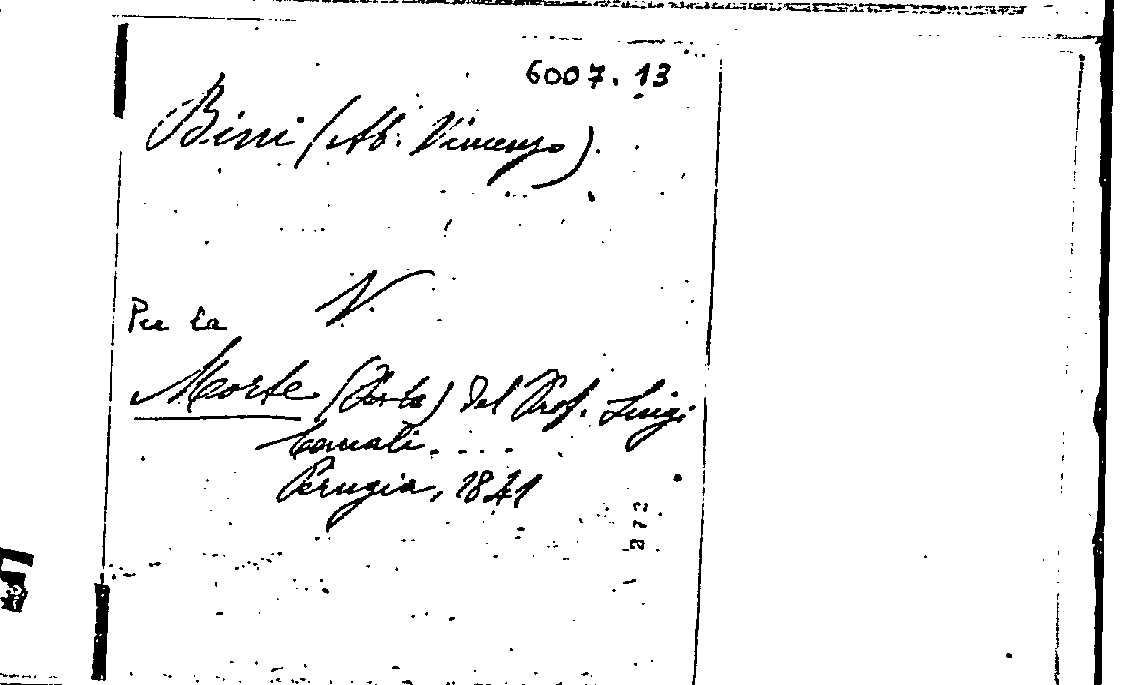 6007.13
Bini (Ab. Vincenzo).
V.
Per la
Morte (Per la) del Prof. Luigi
Canali....
Perugia, 1841
272